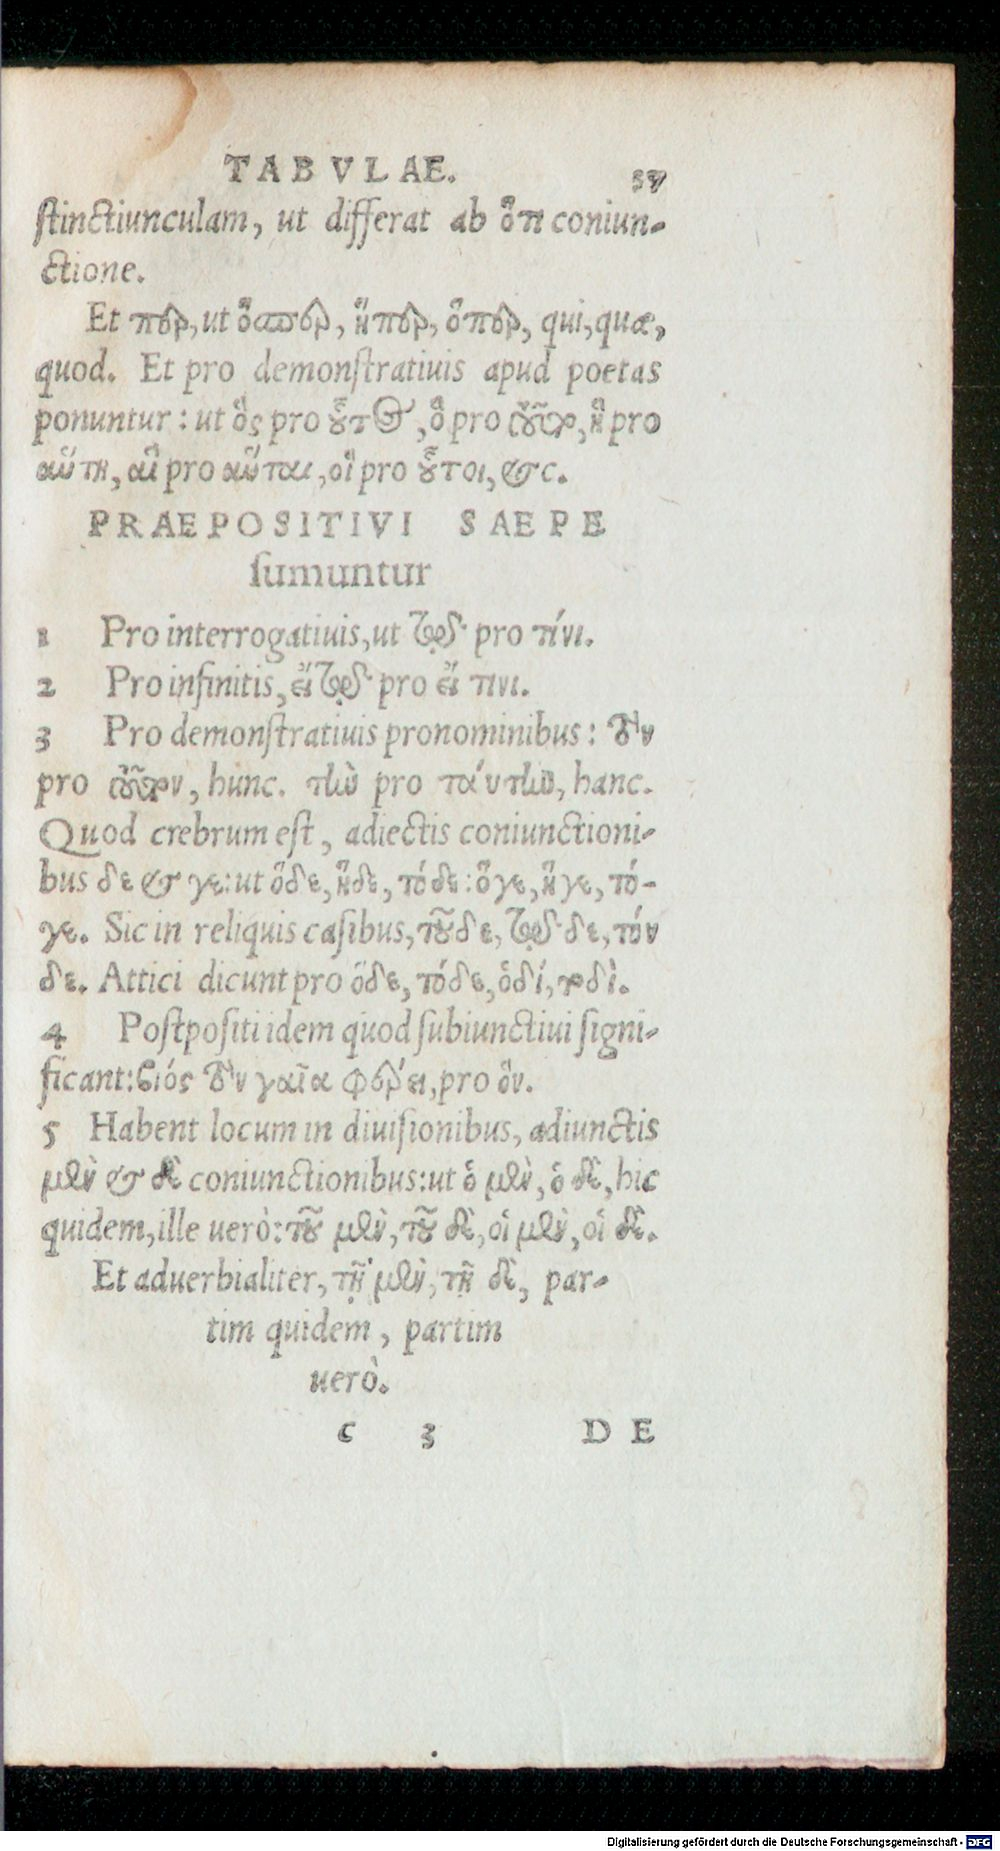 TABVLAE. 37
stinctiunculam, ut differat ab ὅτι coniun-
ctione.
Et πὲρ, ut ὅσπερ, ἥπερ, ὅπερ, qui, quæ,
quod. Et pro demonstratiuis apud poetas
ponuntur: ut ὃς pro οὗτος, ὃ pro τοῦτο, ἣ pro
αὕτη, αἳ pro αὗται, οἳ pro οὗτοι, &c.
PRAEPOSITIVI SAEPE
sumuntur
1 Pro interrogatiuis, ut τῷ pro τίνι.
2 Pro infinitis, εἴ τῳ pro εἴ τινι.
3 Pro demonstratiuis pronominibus: τὸν
pro τοῦτον, hunc. τὴν pro ταύτην, hanc.
Quod crebrum est, adiectis coniunctioni-
bus δε & γε: ut ὅδε, ἥδε, τόδε: ὅγε, ἥγε, τό-
γε. Sic in reliquis casibus, τοῦδε, τῷδε, τόν
δε. Attici dicunt pro ὅδε, τόδε, ὁδί, τοδὶ.
4 Postpositi idem quod subiunctiui signi-
ficant: βιός τὸν γαῖα φέρει, pro ὃν.
5 Habent locum in diuisionibus, adiunctis
μὲν & δὲ coniunctionibus: ut ὁ μὲν, ὁ δὲ, hic
quidem, ille uerò: τοῦ μὲν, τοῦ δὲ, οἱ μὲν, οἱ δὲ.
Et aduerbialiter, τῇ μὲν, τῇ δὲ, par-
tim quidem, partim
uerò.
c 3 DE
Digitalisierung gefördert durch die Deutsche Forschungsgemeinschaft - DFG